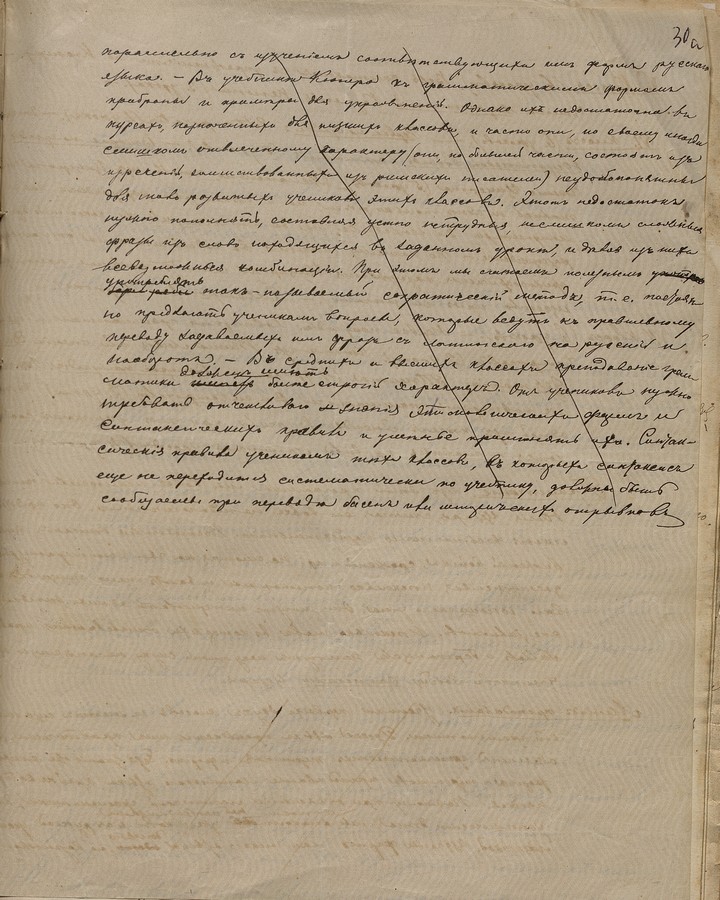 30а
параллельно съ изученіемъ соотвѣтствующихъ имъ формъ русскаго
языка. — Въ учебникѣ Кюнера къ грамматическимъ формамъ
прибраны и примѣры для упражненій. Однако ихъ недостаточно въ
курсахъ, назначенныхъ для низшихъ классовъ, и часто они, по своему иногда
слишкомъ отвлеченному характеру (они, по большей части, состоятъ изъ
изреченій, заимствованныхъ изъ римскихъ писателей) неудобопонятны
для мало развитыхъ учениковъ этихъ классовъ. Этотъ недостатокъ
нужно пополнять, составляя устно нетрудныя, не слишкомъ сложныя
фразы изъ словъ находящихся въ заданномъ урокѣ, и дѣлая изъ нихъ
всевозможныя комбинаціи. При этомъ мы считаемъ полезнымъ
употреблять
такъ-называемый сократическій методъ, т. е. послѣдов-
но предлагать ученикамъ вопросы, которые ведутъ къ правильному
переводу задаваемыхъ имъ фразъ съ латинскаго на русскій и
наоборотъ. — Въ среднихъ и высшихъ классахъ преподаваніе грам-
долженъ имѣть
матики болѣе строгій характеръ. Отъ учениковъ нужно
требовать отчетливаго знанія этимологическихъ формъ и
синтаксическихъ правилъ и умѣнье примѣнять ихъ. Синтак-
сическія правила ученикамъ тѣхъ классовъ, въ которыхъ синтаксисъ
еще не переходится систематически по учебнику, должны быть
сообщаемы при переводѣ басенъ или отрывковъ